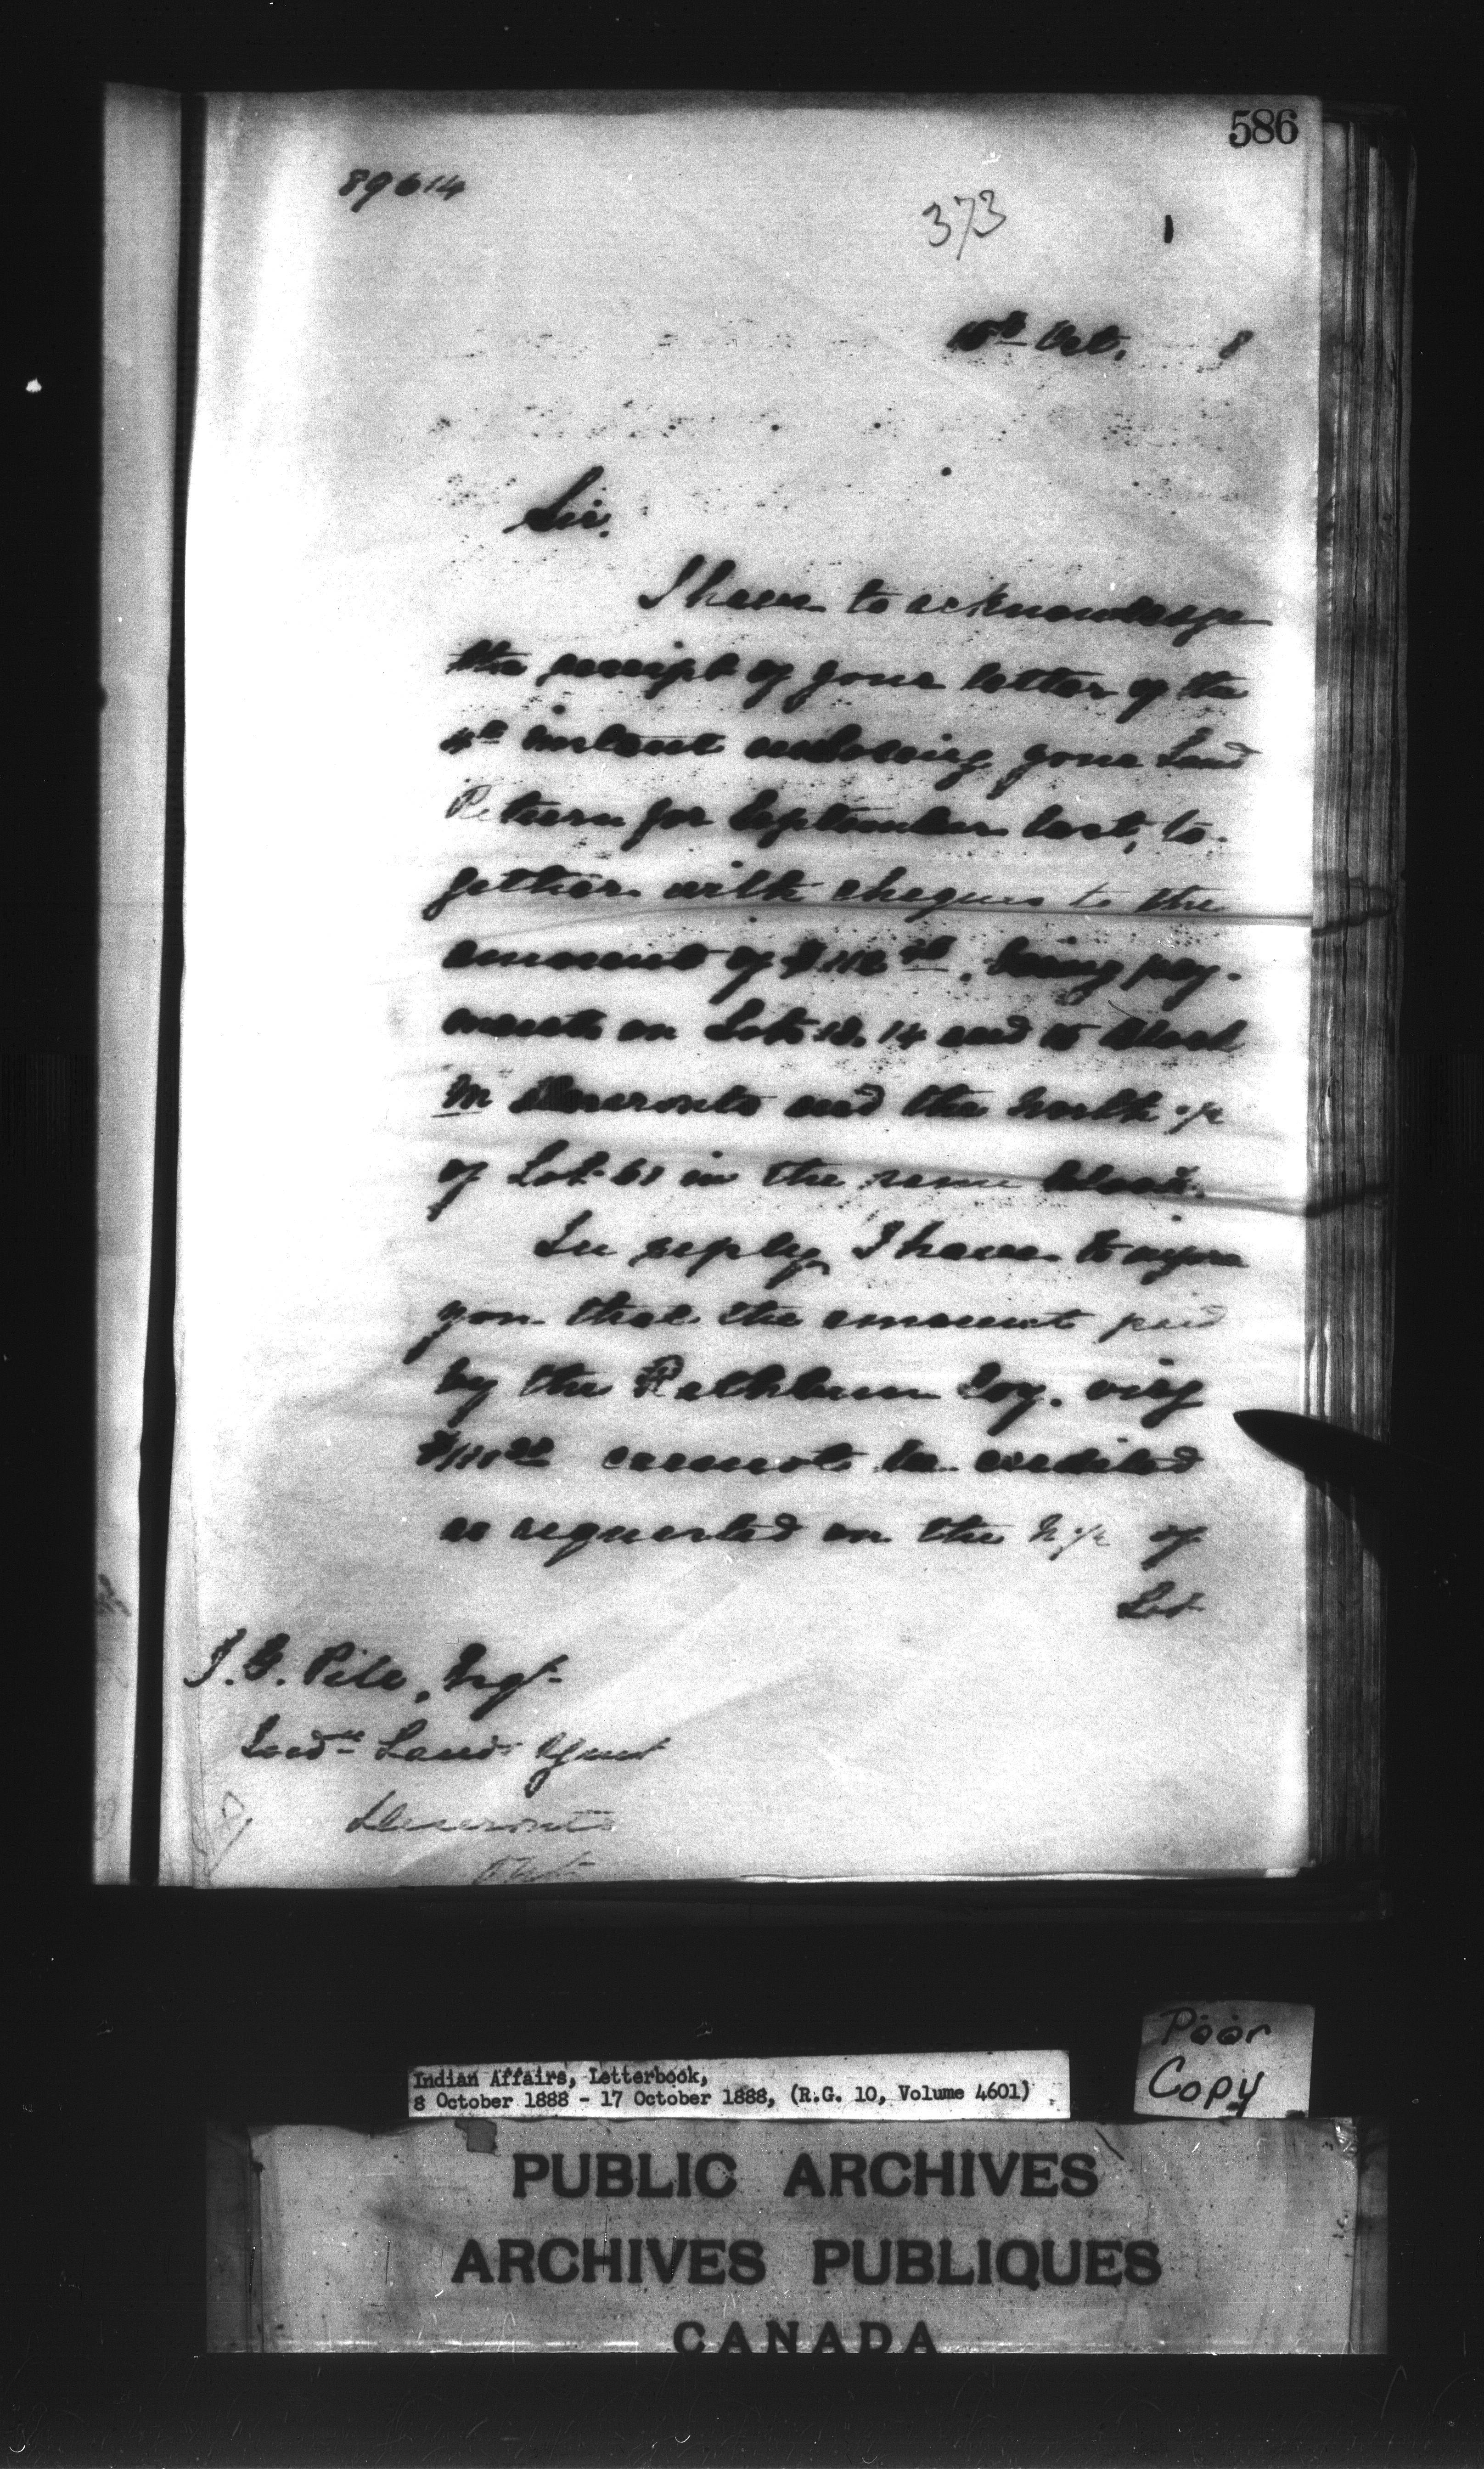 586
89614
373
1
Oct. 8
Sir,
I have to acknowledge
the receipt of your letter of the
4th instant enclosing your Land
Return for September last, to-
gether with cheques to the
amount of being pay-
ments on Lots 14 and 15 Block
M Deseronto and the North ½
of Lot 61 in the same block.
In reply, I have to inform
you that the amount paid
by the Rathbun Coy. viz
cannot be credited
as requested on the N ½ of
Lot
J.G. Pile, Esqr
Indn Land Agent
Deseronto
Ont
Indian Affairs, Letterbook,
8 October 1888 - 17 October 1888, (R.G. 10, Volume 4601)
Poor
Copy
PUBLIC ARCHIVES
ARCHIVES PUBLIQUES
CANADA